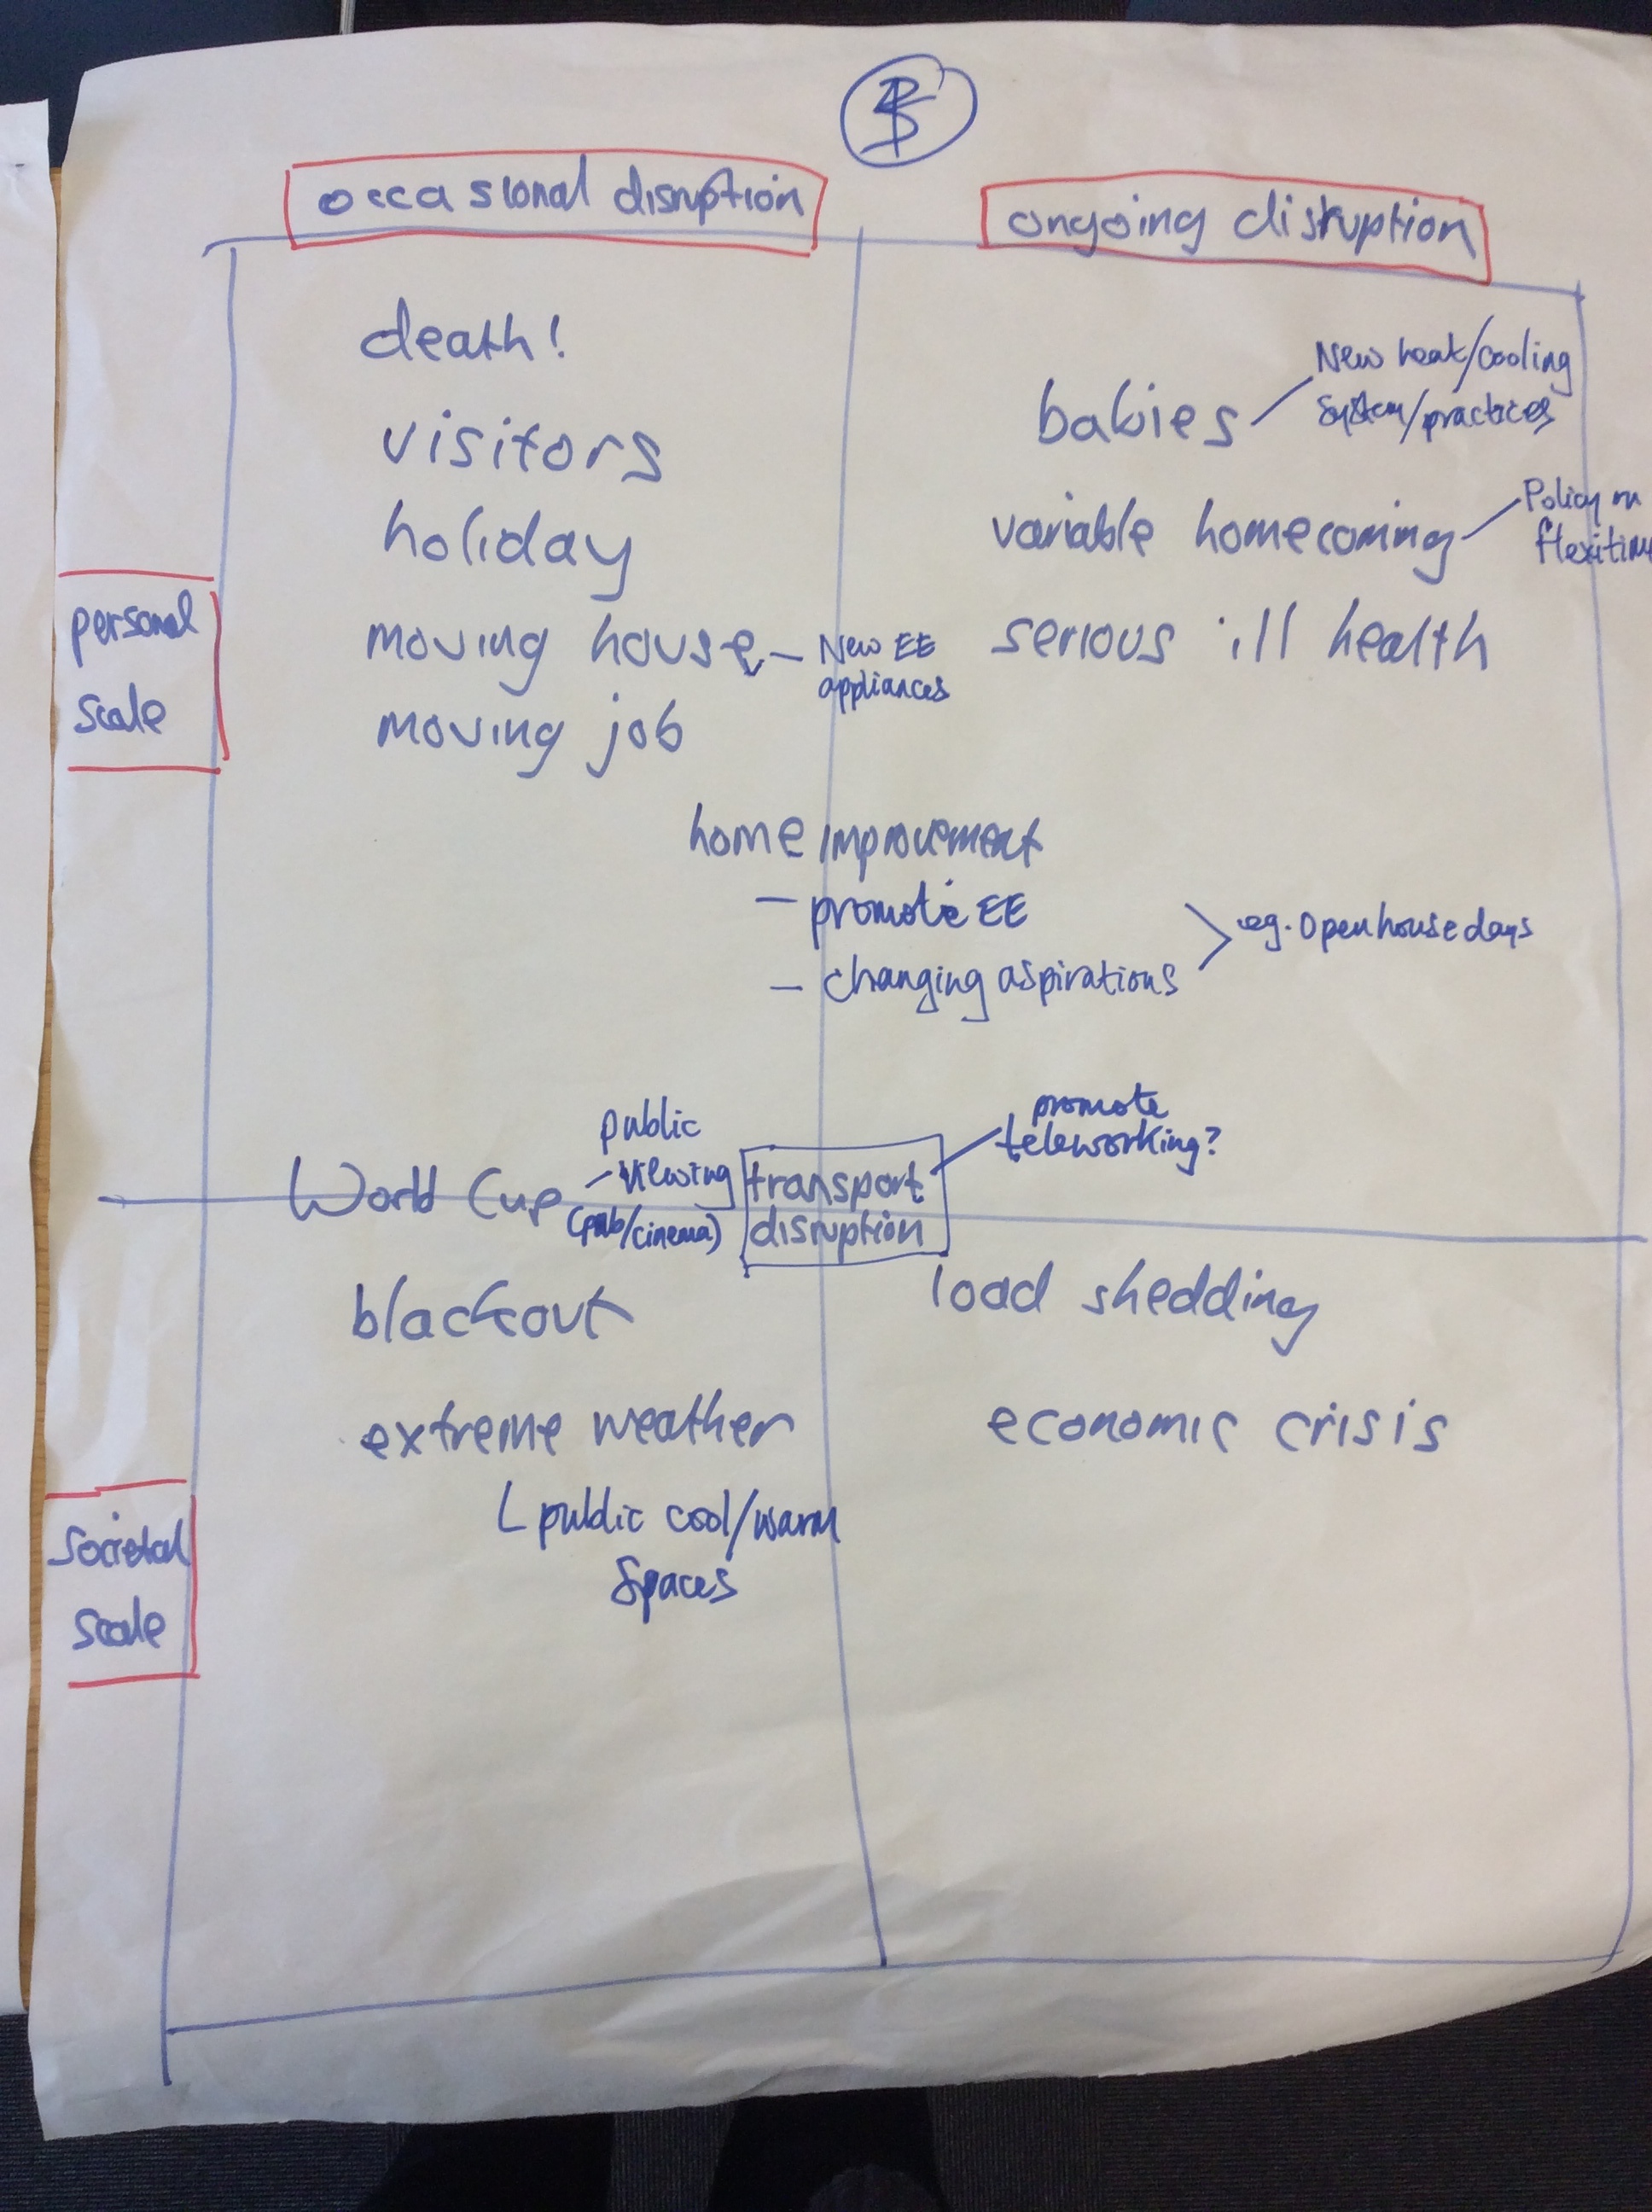 occasional disruption
ongoing disruption
death!
visitors
holiday
moving house – New EE
appliances
moving job
babies
New heat/cooling
system/practices
variable homecoming
Policy on
serious ill health
personal
scale
home improvement
– promote EE
– changing aspirations
eg. Open house days
World Cup
– public
viewing
(pub/cinema)
transport
disruption
promote
teleworking?
blackout
load shedding
extreme weather
public cool/warm
spaces
economic crisis
societal
scale